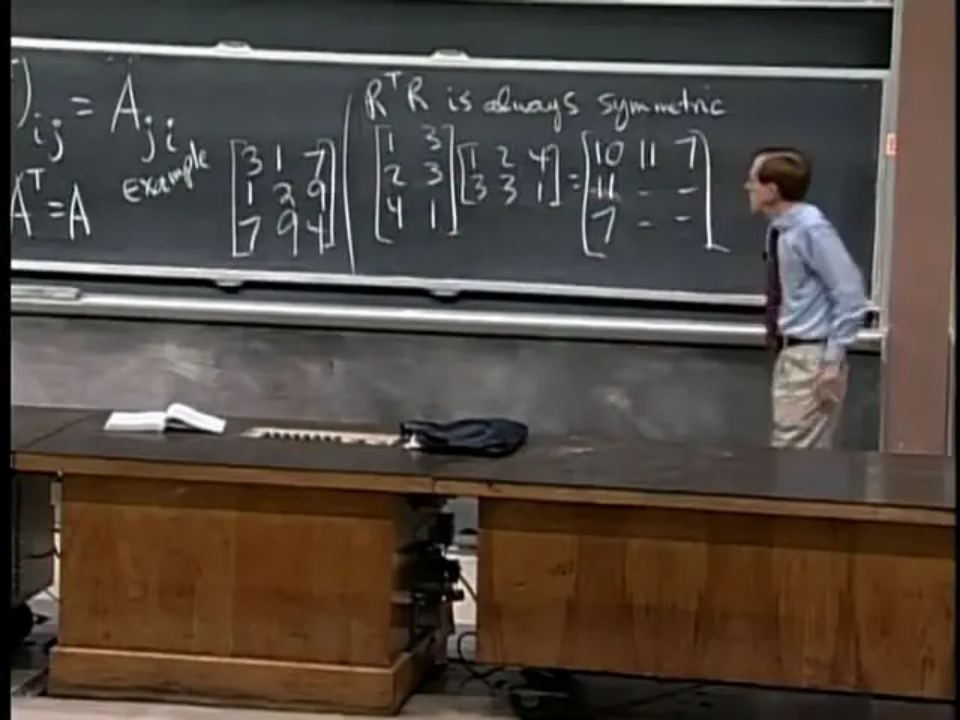 )ij = Aji
Aᵀ = A
example
[3 1 7
1 2 9
7 9 4]
RᵀR is always symmetric
[1 3
2 3
4 1] [1 2 4
3 3 1] = [10 11 7
11 - -
7 - -]